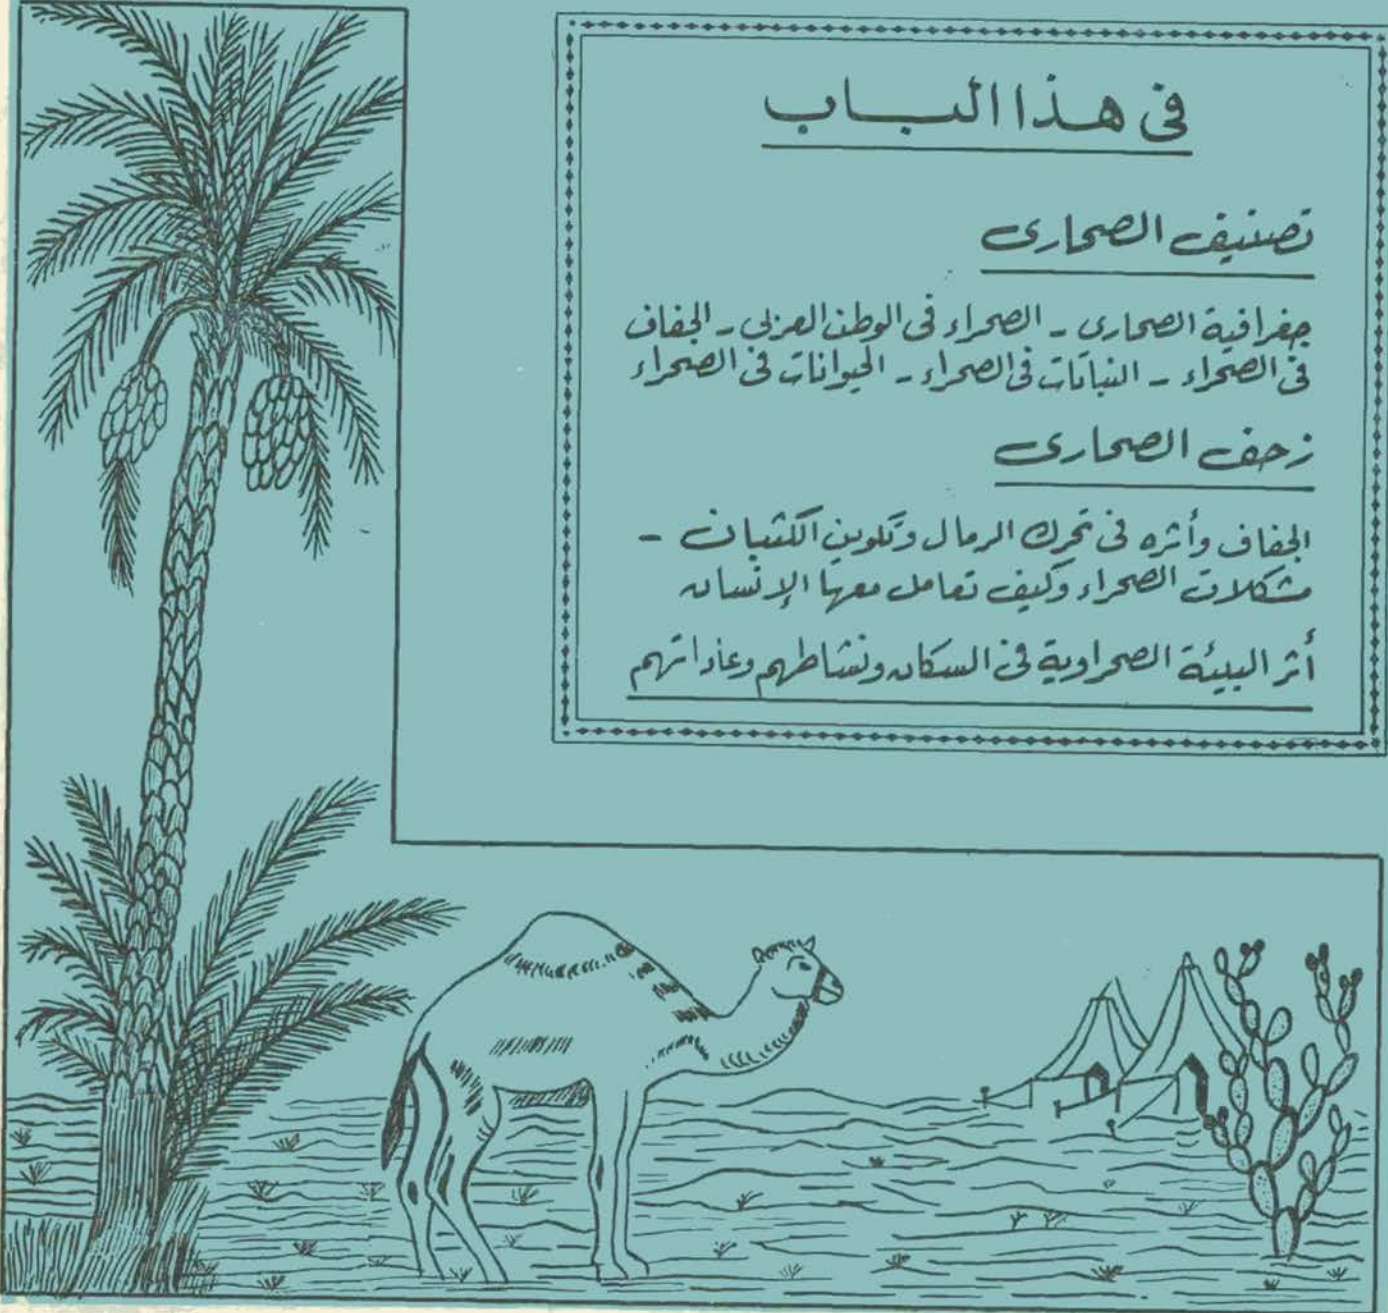 فى هذا الباب
تصنيف الصحارى
جغرافية الصحارى - الصحراء فى الوطن العربى - الجفاف
فى الصحراء - النباتات فى الصحراء - الحيوانات فى الصحراء
زحف الصحارى
الجفاف وأثره فى تحرك الرمال وتكوين الكثبان -
مشكلات الصحراء وكيف تعامل معها الإنسان
أثر البيئة الصحراوية فى السكان ونشاطهم وعاداتهم